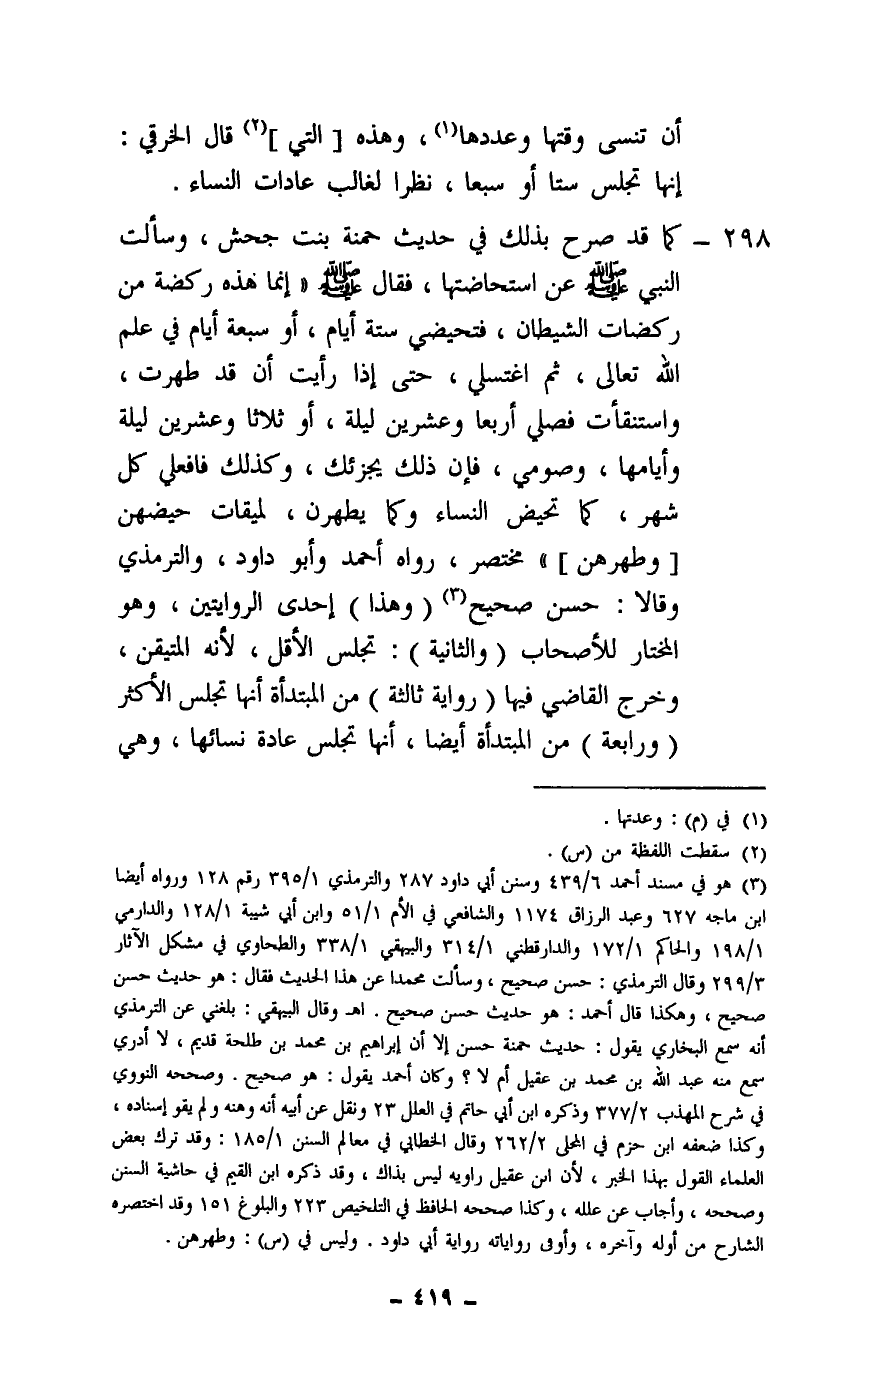 أن تنسى وقتها وعددها(١) ، وهذه [ التي ](٢) قال الخرقي :
إنها تجلس ستا أو سبعا ، نظرا لغالب عادات النساء .
٢٩٨ – كما قد صرح بذلك في حديث حمنة بنت جحش ، وسألت
النبي ﷺ عن استحاضتها ، فقال ﷺ « إنما هذه ركضة من
ركضات الشيطان ، فتحيضي ستة أيام ، أو سبعة أيام في علم
الله تعالى ، ثم اغتسلي ، حتى إذا رأيت أن قد طهرت ،
واستنقأت فصلي أربعا وعشرين ليلة ، أو ثلاثا وعشرين ليلة
وأيامها ، وصومي ، فإن ذلك يجزئك ، وكذلك فافعلي كل
شهر ، كما تحيض النساء وكما يطهرن ، لميقات حيضهن
[ وطهرهن ] » مختصر ، رواه أحمد وأبو داود ، والترمذي
وقالا : حسن صحيح(٣) ( وهذا ) إحدى الروايتين ، وهو
المختار للأصحاب ( والثانية ) : تجلس الأقل ، لأنه المتيقن ،
وخرج القاضي فيها ( رواية ثالثة ) من المبتدأة أنها تجلس الأكثر
( ورابعة ) من المبتدأة أيضا ، أنها تجلس عادة نسائها ، وهي
(١) في (م) : وعدتها .
(٢) سقطت اللفظة من (س) .
(٣) هو في مسند أحمد ٤٣٩/٦ وسنن أبي داود ٢٨٧ والترمذي ٣٩٥/١ رقم ١٢٨ ورواه أيضا
ابن ماجه ٦٢٧ وعبد الرزاق ١١٧٤ والشافعي في الأم ٥١/١ وابن أبي شيبة ١٢٨/١ والدارمي
١٩٨/١ والحاكم ١٧٢/١ والدارقطني ٣١٤/١ والبيهقي ٣٣٨/١ والطحاوي في مشكل الآثار
٢٩٩/٣ وقال الترمذي : حسن صحيح ، وسألت محمدا عن هذا الحديث فقال : هو حديث حسن
صحيح ، وهكذا قال أحمد : هو حديث حسن صحيح . اهـ وقال البيهقي : بلغني عن الترمذي
أنه سمع البخاري يقول : حديث حمنة حسن إلا أن إبراهيم بن محمد بن طلحة قديم ، لا أدري
سمع منه عبد الله بن محمد بن عقيل أم لا ؟ وكان أحمد يقول : هو صحيح . وصححه النووي
في شرح المهذب ٣٧٧/٢ وذكره ابن أبي حاتم في العلل ٢٣ ونقل عن أبيه أنه وهنه ولم يقو إسناده ،
وكذا ضعفه ابن حزم في المحلى ٢٦٢/٢ وقال الخطابي في معالم السنن ١٨٥/١ : وقد ترك بعض
العلماء القول بهذا الخبر ، لأن ابن عقيل راويه ليس بذاك ، وقد ذكره ابن القيم في حاشية السنن
وصححه ، وأجاب عن علله ، وكذا صححه الحافظ في التلخيص ٢٢٣ والبلوغ ١٥١ وقد اختصره
الشارح من أوله وآخره ، وأوفى رواياته رواية أبي داود . وليس في (س) : وطهرهن .
– ٤١٩ –